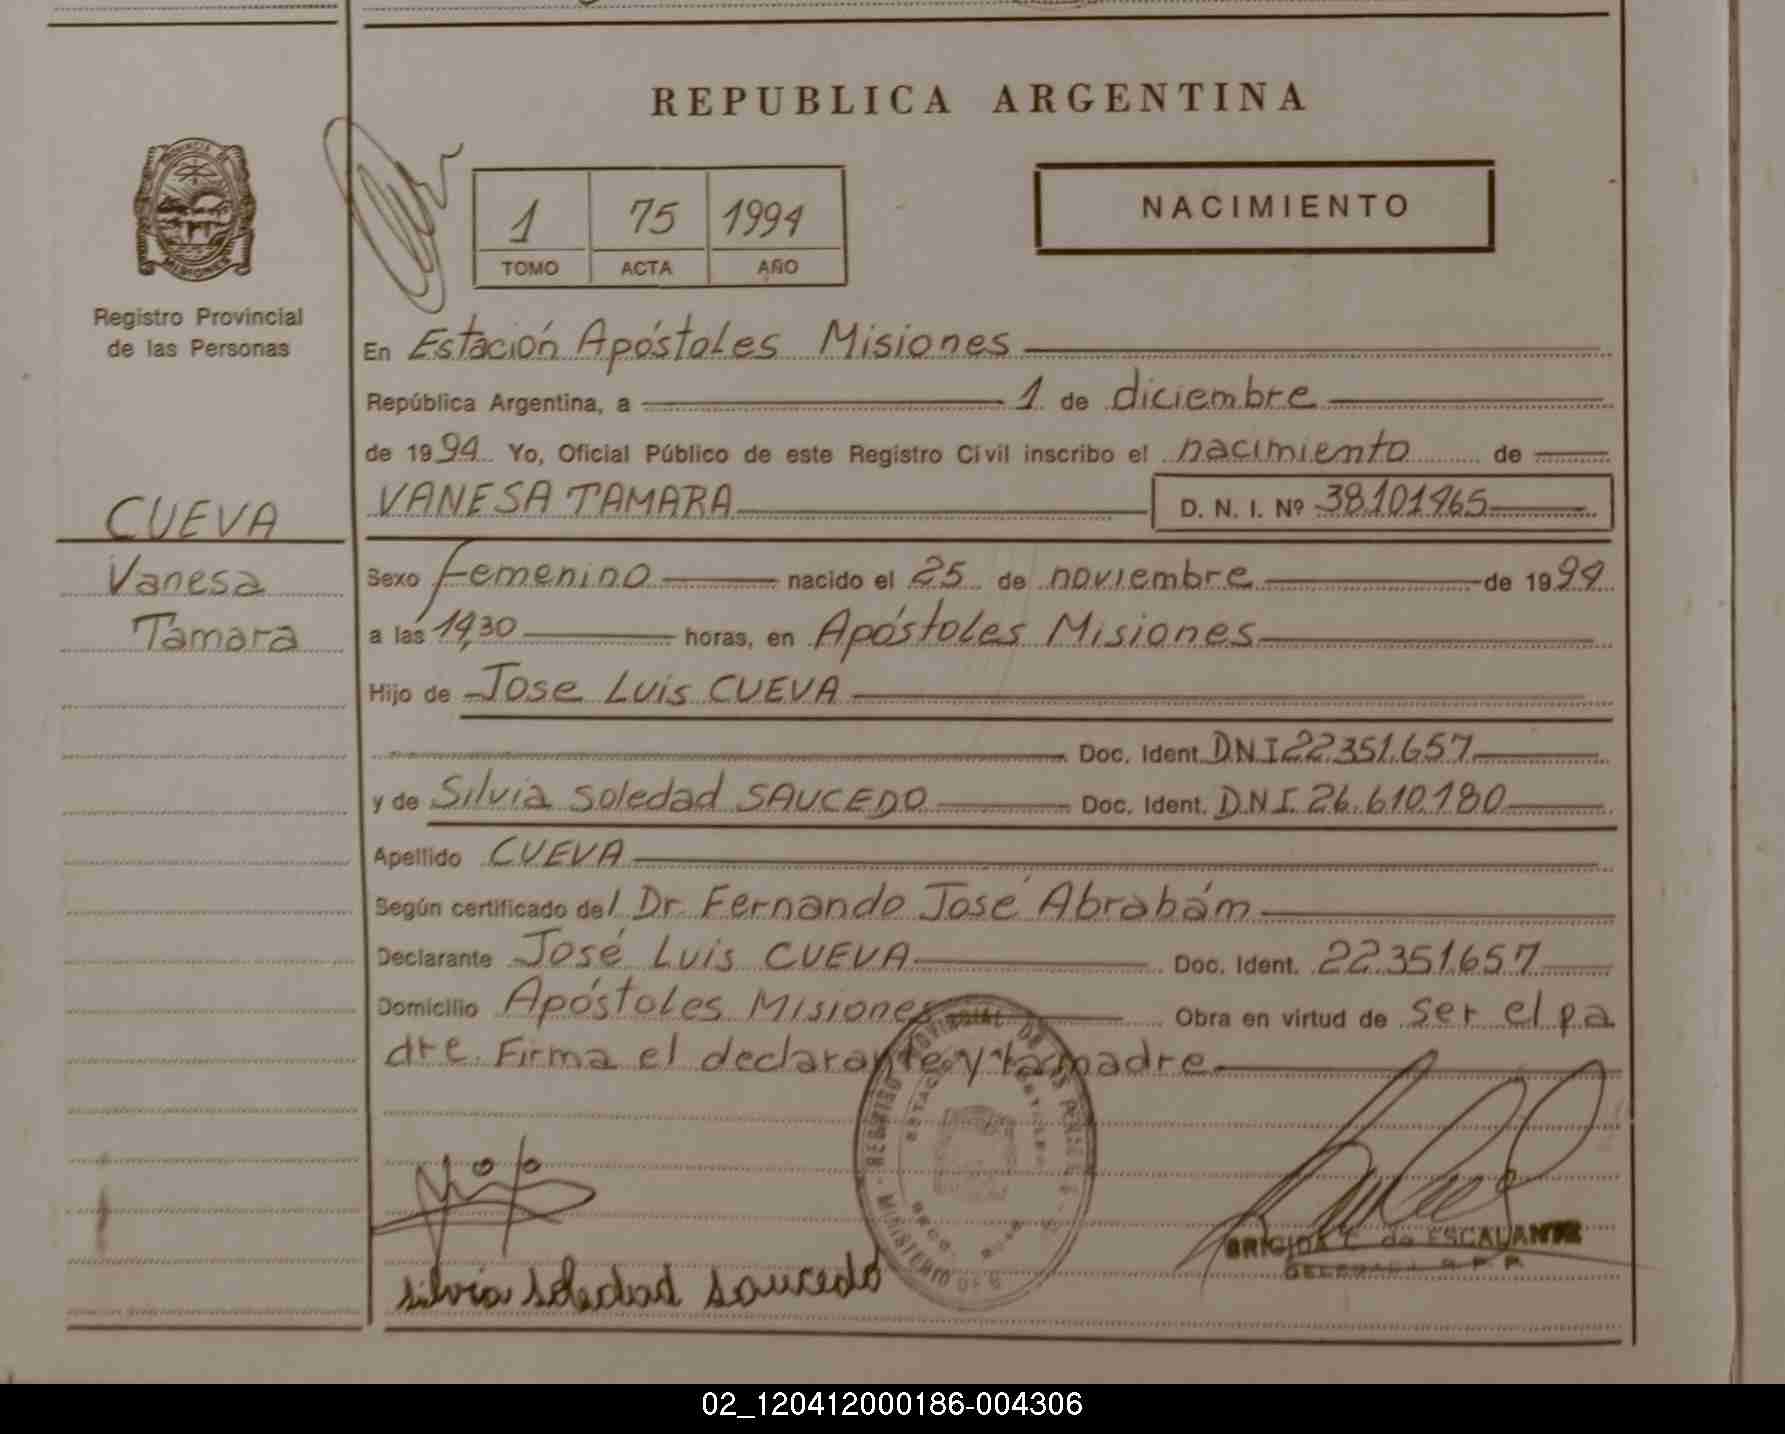 REPUBLICA ARGENTINA
PROVINCIA DE
MISIONES
Registro Provincial
de las Personas
1 75 1994
TOMO ACTA AÑO
NACIMIENTO
En Estación Apóstoles Misiones
República Argentina, a 1 de diciembre
de 1994 Yo, Oficial Público de este Registro Civil inscribo el nacimiento de
CUEVA
Vanesa
Tamara
VANESA TAMARA D. N. I. Nº 38101465
Sexo femenino nacido el 25 de noviembre de 1994
a las 14,30 horas, en Apóstoles Misiones
Hijo de Jose Luis CUEVA
Doc. Ident. DNI 22351.657
y de Silvia Soledad SAUCEDO Doc. Ident. DNI. 26.610.180
Apellido CUEVA
Según certificado del Dr. Fernando José Abrabám
Declarante José Luis CUEVA Doc. Ident. 22.351.657
Domicilio Apóstoles Misiones Obra en virtud de ser el pa
dre. Firma el declarante y la madre
REGISTRO PROVINCIAL DE LAS PERSONAS - MINISTERIO
BRIGIDA C. de ESCALANTE
DELEGADA R. P. P.
silvia soledad saucedo
02_120412000186-004306